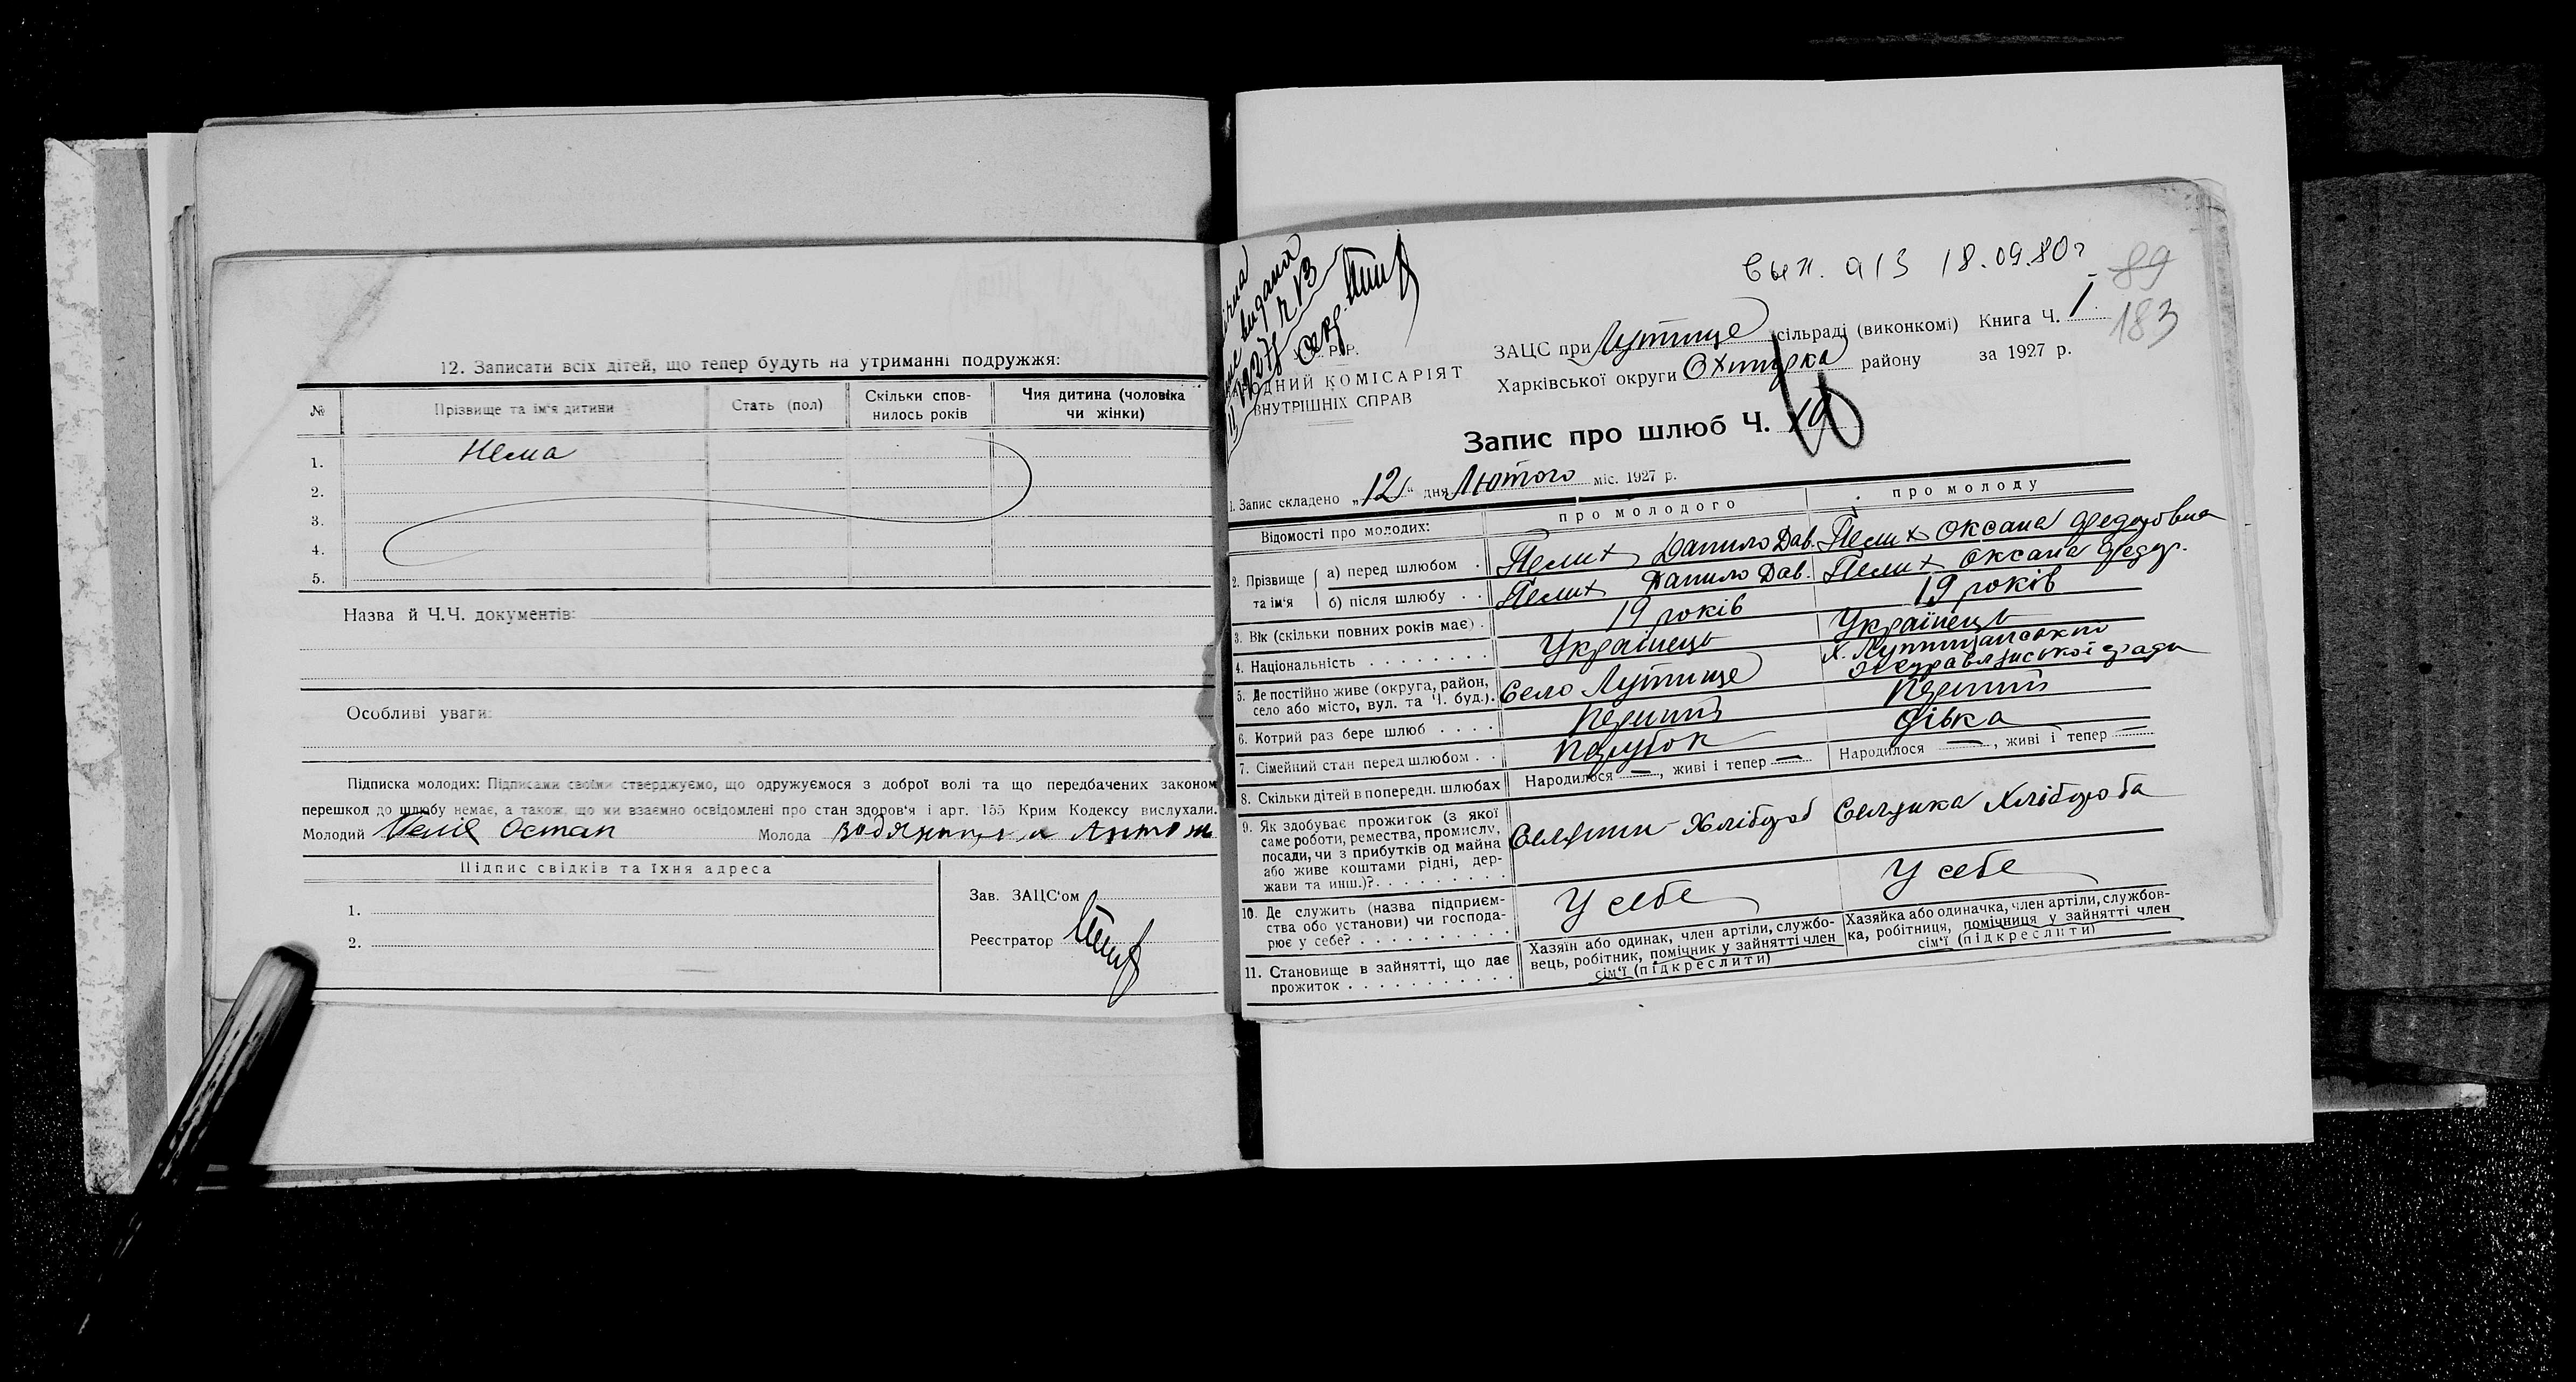 12. Записати всіх дітей, що тепер будуть на утриманні подружжя:
№ Прізвище та ім'я дитини Стать (пол) Скільки спов-нилось років Чия дитина (чоловіка чи жінки)
1. Нема
2.
3.
4.
5.
Назва й Ч.Ч. документів:
Особливі уваги:
Підписка молодих: Підписами своїми стверджуємо, що одружуємося з доброї волі та що передбачених законом
перешкод до шлюбу немає, а також, що ми взаємно освідомлені про стан здоров'я і арт. 155 Крим Кодексу вислухали.
Молодий Остап Молода
Підпис свідків та їхня адреса
1.
2.
Зав. ЗАЦС'ом
Реєстратор
Вып. а/з 18.09.80г
89
183
ЗАЦС при Лутище сільраді (виконкомі) Книга Ч. 1
Харківської округи Охтирка району за 1927 р.
Р.Р.
ОДНИЙ КОМІСАРІЯТ
ВНУТРІШНІХ СПРАВ
Запис про шлюб Ч. 19
1. Запис складено „12" дня Лютого міс. 1927 р.
Відомості про молодих: про молодого про молоду
2. Прізвище та ім'я а) перед шлюбом Пелих Данило Дав. Пелих Оксана Федоровна
б) після шлюбу Пелих Данило Дав. Пелих Оксана Федор.
3. Вік (скільки повних років має) 19 років 19 років
4. Національність Українець Українець
5. Де постійно живе (округа, район, село або місто, вул. та Ч. буд.) Село Лутище х. Журавлинської Ради
6. Котрий раз бере шлюб перший перший
7. Сімейний стан перед шлюбом парубок дівка
8. Скільки дітей в попередн. шлюбах Народилося —, живі і тепер — Народилося —, живі і тепер —
9. Як здобуває прожиток (з якої саме роботи, ремества, промислу, посади, чи з прибутків од майна або живе коштами рідні, дер-жави та инш.)? Селянин Хлібороб Селянка Хлібороба
10. Де служить (назва підприєм-ства обо установи) чи господа-рює у себе? У себе У себе
11. Становище в зайнятті, що дає прожиток Хазяїн або одинак, член артіли, службо-вець, робітник, помічник у зайнятті член сім'ї (підкреслити) Хазяйка або одиначка, член артіли, службов-ка, робітниця, помічниця у зайнятті член сім'ї (підкреслити)